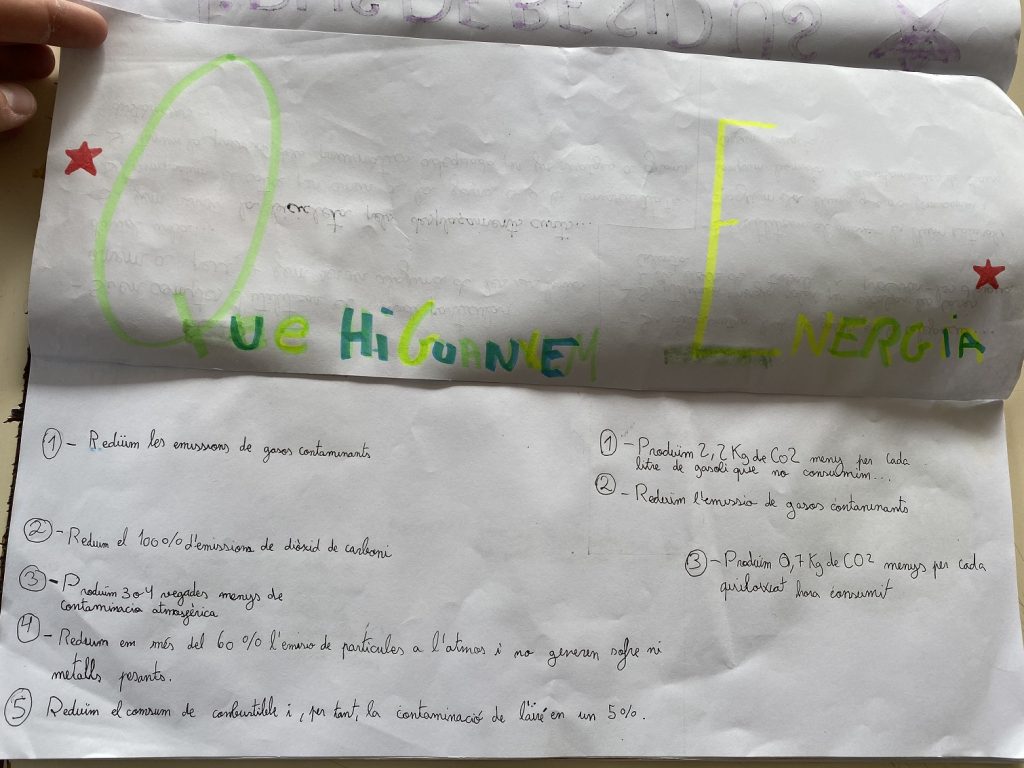 DE RESIDUS
QUE Hi GUANYEM
ENERGiA
1 - Reduïm les emissions de gasos contaminants
2 - Reduim el 100% d'emissions de diòxid de carboni
3 - Produim 3 o 4 vegades menys de
contaminacia atmosfèrica
4 - Reduim em més del 60% l'emiso de particules a l'atmos i no generem sofre ni
metalls pesants.
5 Reduïm el comsum de combustible i, per tant, la contaminació de l'aire en un 5%.
1 - Produïm 2,2 Kg de CO2 menys per cada
litre de gasoli que no consumim...
2 - Reduim l'emissio de gasos contaminants
3 - Produim 0,7 Kg de CO2 menys per cada
hora consumit